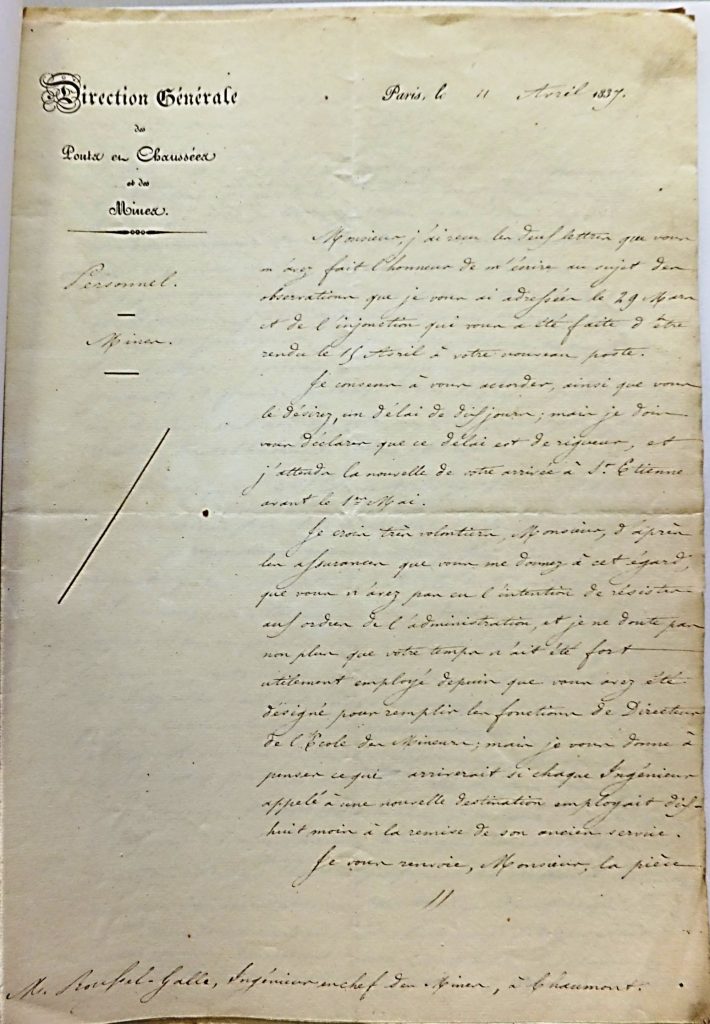 Direction Générale
des
Ponts et Chaussées
et des
Mines.
Paris, le 11 Avril 1837.
Personnel.
Mines.
Monsieur, j'ai reçu les deux lettres que vous
m'avez fait l'honneur de m'écrire au sujet des
observations que je vous ai adressées le 29 Mars
et de l'injonction qui vous a été faite d'être
rendu le 15 Avril à votre nouveau poste.
Je consens à vous accorder, ainsi que vous
le désirez, un délai de dix jours; mais je dois
vous déclarer que ce délai est de rigueur, et
j'attends la nouvelle de votre arrivée à St. Etienne
avant le 1er Mai.
Je crois très volontiers, Monsieur, d'après
les assurances que vous me donnez à cet égard,
que vous n'avez pas eu l'intention de résister
aux ordres de l'administration, et je ne doute pas
non plus que votre temps n'ait été fort
utilement employé depuis que vous avez été
désigné pour remplir les fonctions de Directeur
de l'Ecole des Mineurs; mais je vous donne à
penser ce qui arriverait si chaque Ingénieur
appelé à une nouvelle destination employait dix-
huit mois à la remise de son ancien service.
Je vous renvoie, Monsieur, la pièce
11
Mr. Roussel-Galle, Ingénieur en chef des Mines, à Chaumont.